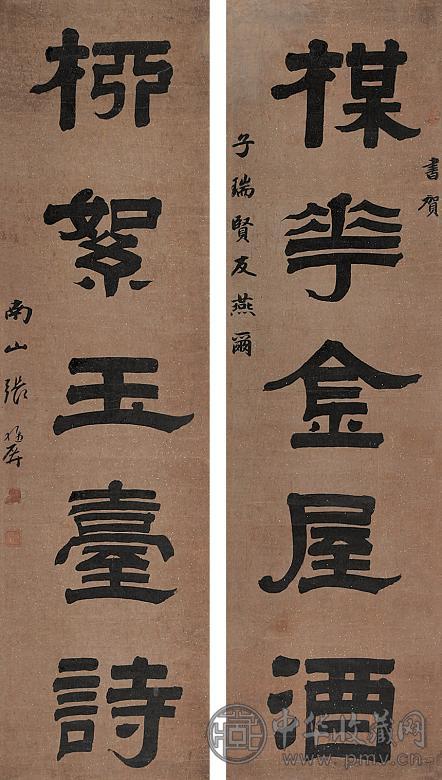 書賀
楳華金屋酒
子瑞賢友燕爾
柳絮玉臺詩
南山張維屏
中华收藏网
www.pmv.cn